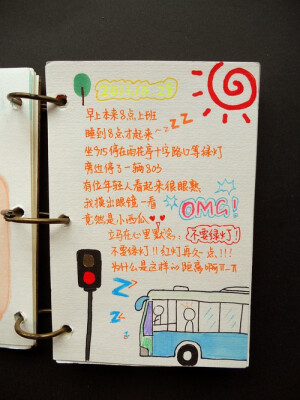 早上本来8点上班
睡到8点才起来~zZZ
坐915停在雨花亭十字路口等绿灯
旁边停了一辆803
有位年轻人看起来很眼熟
我摸出眼镜一看
竟然是小西瓜
OMG!
立马在心里默念，不要绿灯！
不要绿灯!!红灯再久一点!!!
为什么是这样的距离啊π_π
Z
Z
z